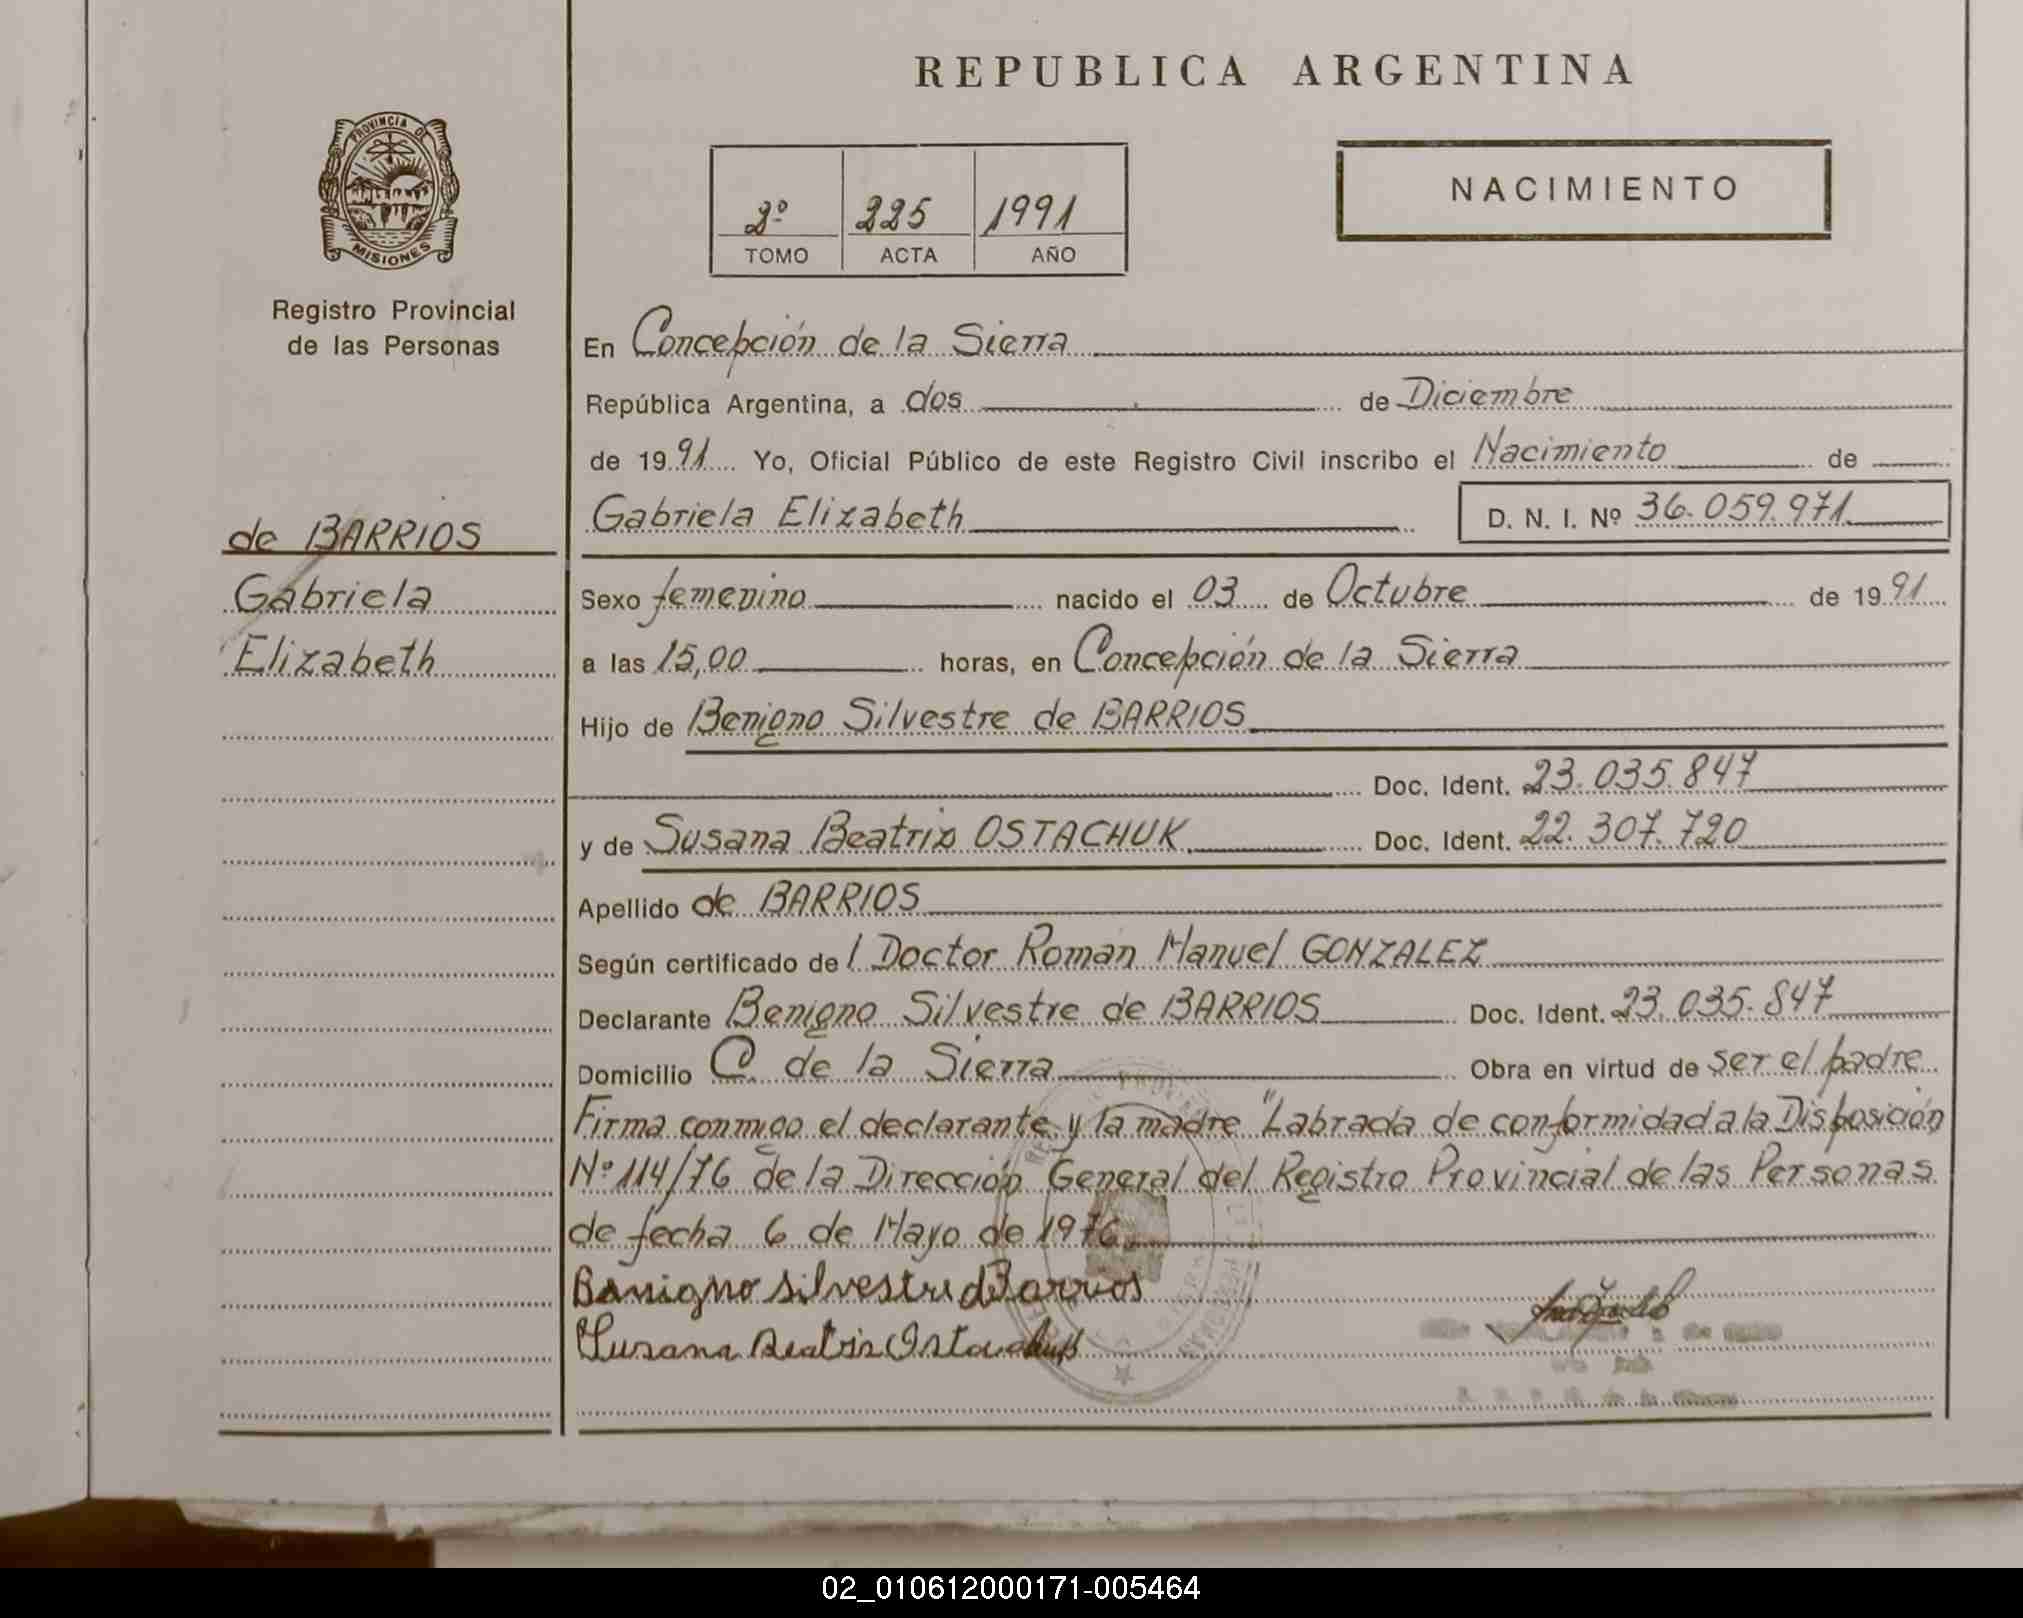 REPUBLICA ARGENTINA
PROVINCIA DE
MISIONES
Registro Provincial
de las Personas
2º 225 1991
TOMO ACTA AÑO
NACIMIENTO
En Concepción de la Sierra
República Argentina, a dos de Diciembre
de 1991 Yo, Oficial Público de este Registro Civil inscribo el Nacimiento de
Gabriela Elizabeth D. N. I. Nº 36.059.971
de BARRIOS
Gabriela
Elizabeth
Sexo femenino nacido el 03 de Octubre de 1991
a las 15,00 horas, en Concepción de la Sierra
Hijo de Benigno Silvestre de BARRIOS
Doc. Ident. 23.035.847
y de Susana Beatriz OSTACHUK Doc. Ident. 22.307.720
Apellido de BARRIOS
Según certificado del Doctor Roman Manuel GONZALEZ
Declarante Benigno Silvestre de BARRIOS Doc. Ident. 23.035.847
Domicilio C. de la Sierra Obra en virtud de ser el padre
Firma conmigo el declarante y la madre "Labrada de conformidad a la Disposición
Nº 114/76 de la Dirección General del Registro Provincial de las Personas
de fecha 6 de Mayo de 1976
Benigno silvestre dBarrios
Susana Beatriz Ostachuk
02_010612000171-005464